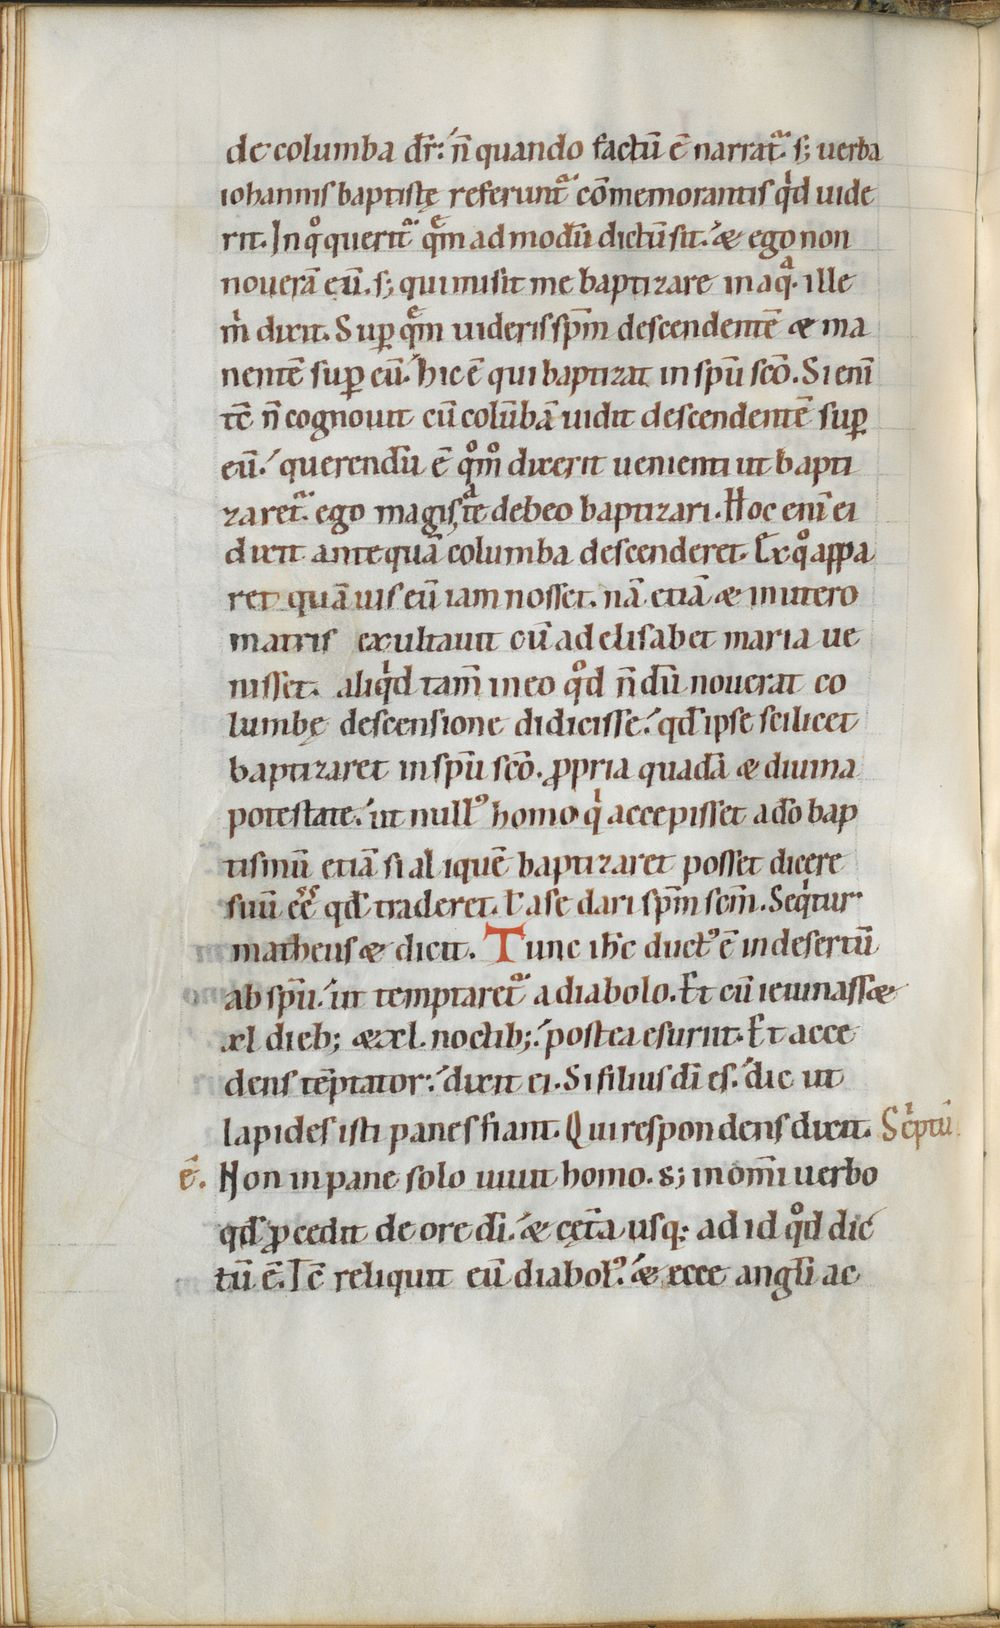 de columba dr̄: n̄ quando factū ē narratᷓ. s; uerba
iohannis baptistę referuntᷓ cōmemorantis qͥd uide
rit. In qͦ queritᷓ quͤm ad modū dictū sit. & ego non
nouerā eū. s; qui misit me baptizare in aqᷓ. ille
m̍ dixit. Suꝑ qͤm uideris sp̄m descendentē & ma
nentē suꝑ eū. hic ē qui baptizat in sp̄u sc̄o. Si enī
tc̄ n̄ cognouit cū colūbā uidit descendentē suꝑ
eū. querendū ē qͦmͦ dixerit uenienti ut bapti
zaretᷓ. ego magis ᷓte debeo baptizari. Hoc enī ei
dixit ante quā columba descenderet. Ex qͦ appa
ret quāuis eū iam nosset. nā etiā & in utero
matris exultauit cū ad elisabet maria ue
nisset. aliqͥd tam̄ in eo qͦd n̄dū nouerat co
lumbę descensione didicisse. qd̄ ipse scilicet
baptizaret in sp̄u sc̄o. ꝓpria quadā & diuina
potestate. ut nullꝰ homo qͥ accepisset a dō bap
tismū etiā si aliquē baptizaret posset dicere
suū ēē qd̄ traderet. ɫ a se dari sp̄m scm̄. Seqͥtur
matheus & dicit. Tunc ih̄c ductꝰ ē in desertū
ab sp̄u. ut temptaretᷓ a diabolo. Et cū ieiunass&
xl dieb; & xl. noctib; postea esuriit. Et acce
dens tēptator: dixit ei. Si filius dī es. dic ut
lapides isti panes fiant. Qui respondens dixit. Scͥptū
ē. Non in pane solo uiuit homo. s; in om̄i uerbo
qd̄ ꝓcedit de ore dī. & cęt̄a usq; ad id qͦd dic
tū ē. Tc̄ reliquit eū diabolꝰ. & ecce angl̄i ac